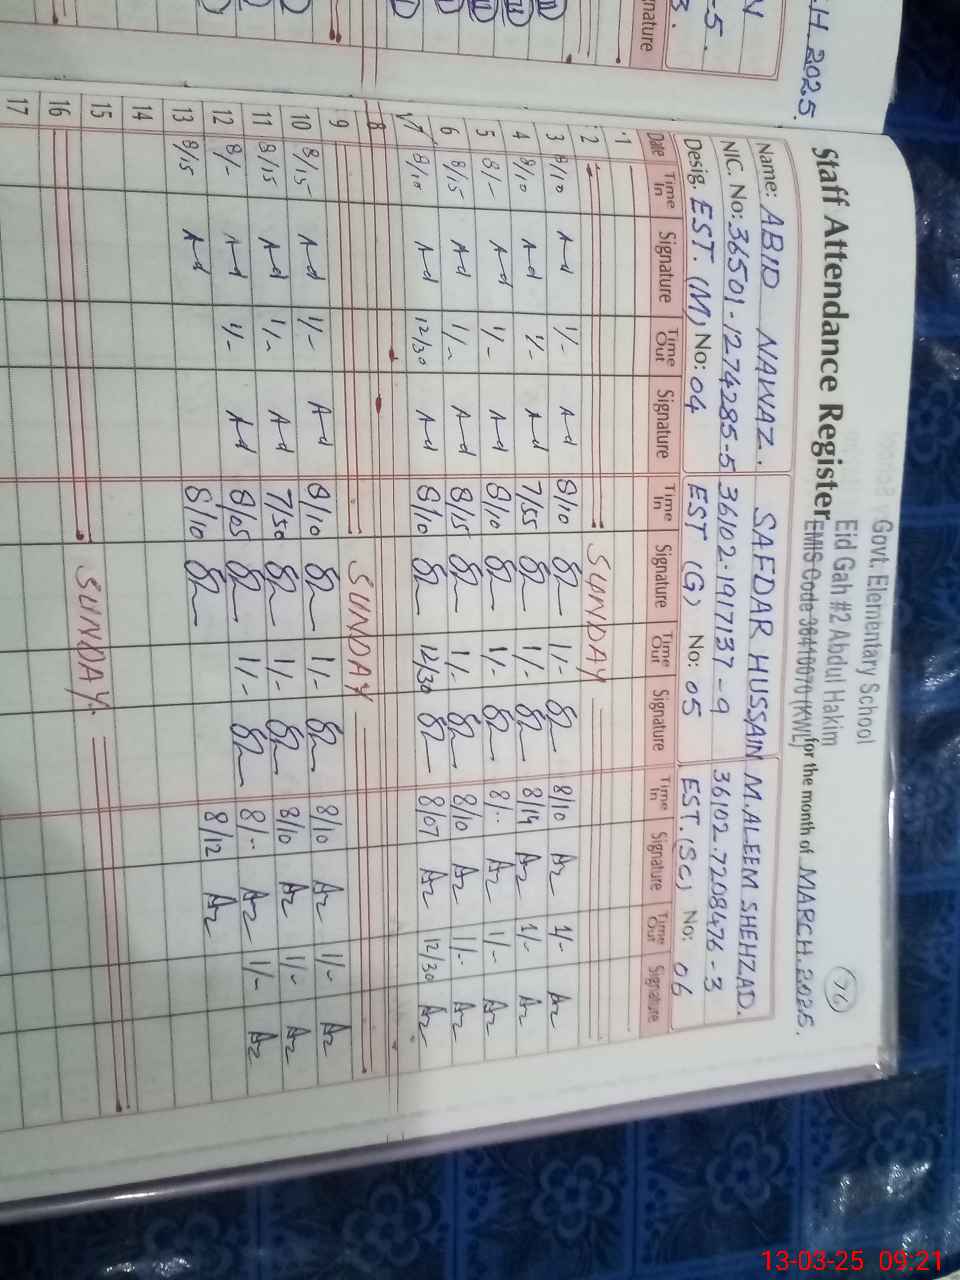 Govt. Elementary School
Eid Gah #2 Abdul Hakim
76
Staff Attendance Register EMIS Code 36410070 (KWL) for the month of MARCH. 2025.
Name: ABID NAWAZ. SAFDAR HUSSAIN M. ALEEM SHEHZAD.
NIC. No: 36501-1274285-5 36102-1917137-9 36102-7208476-3
Desig. EST. (M) No: 04 EST (G) No: 05 EST. (SC) No: 06
Date Time In Signature Time Out Signature Time In Signature Time Out Signature Time In Signature Time Out Signature
1
2 SUNDAY
3 8/10 Ad 1/- Ad 8/10 1/- 8/10 Az 1/- Az
4 8/10 Ad 1/- Ad 7/55 1/- 8/14 Az 1/- Az
5 8/- Ad 1/- Ad 8/10 1/- 8/- Az 1/- Az
6 8/15 Ad 1/- Ad 8/15 1/- 8/10 Az 1/- Az
7 8/10 Ad 12/30 Ad 8/10 12/30 8/07 Az 12/30 Az
8
9 SUNDAY
10 8/15 Ad 1/- Ad 8/10 1/- 8/10 Az 1/- Az
11 8/15 Ad 1/- Ad 7/50 1/- 8/10 Az 1/- Az
12 8/- Ad 1/- Ad 8/05 1/- 8/- Az 1/- Az
13 8/15 Ad 8/10 8/12 Az
14
15
16 SUNDAY
17
.H. 2025.
N
-5.
3.
nature
13-03-25 09:21